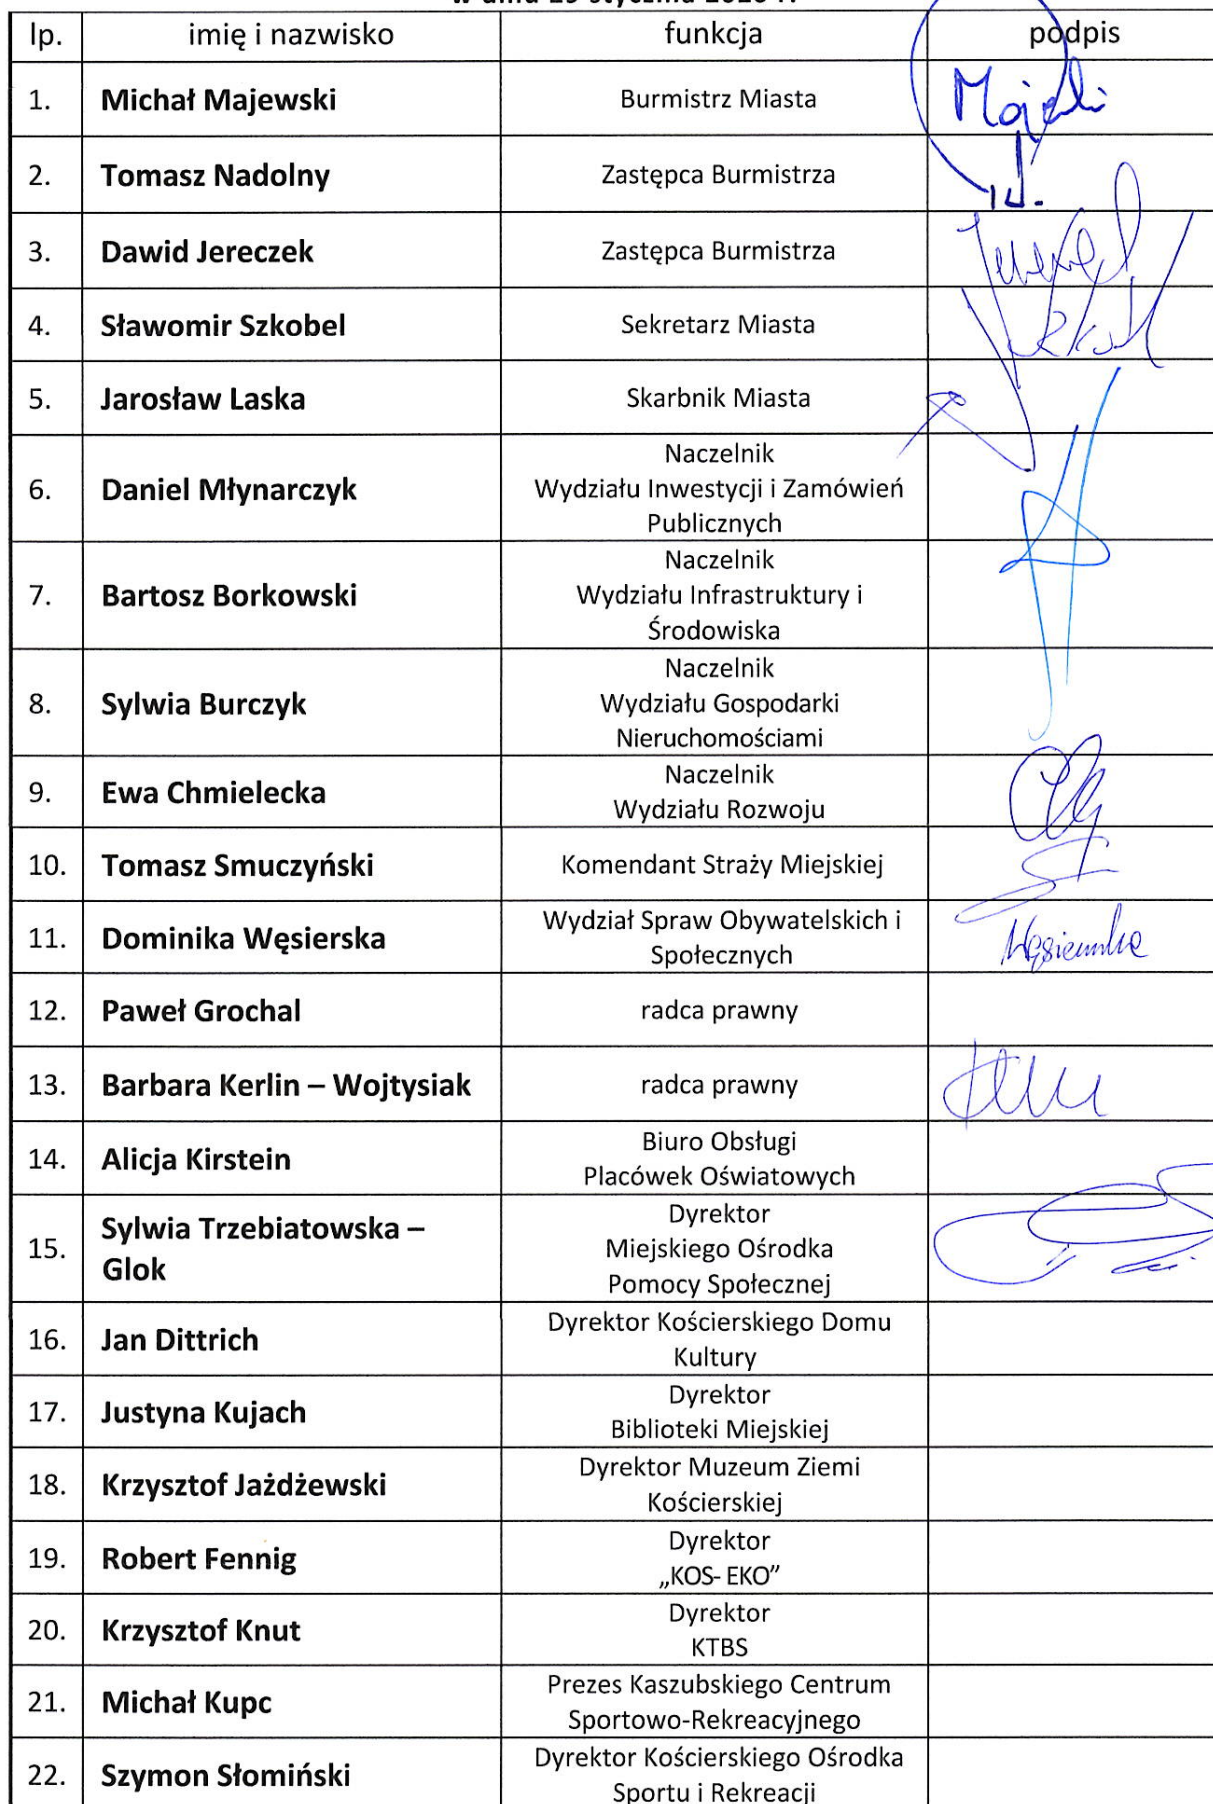 lp. imię i nazwisko funkcja podpis
1. Michał Majewski Burmistrz Miasta
2. Tomasz Nadolny Zastępca Burmistrza
3. Dawid Jereczek Zastępca Burmistrza
4. Sławomir Szkobel Sekretarz Miasta
5. Jarosław Laska Skarbnik Miasta
6. Daniel Młynarczyk Naczelnik
Wydziału Inwestycji i Zamówień
Publicznych
7. Bartosz Borkowski Naczelnik
Wydziału Infrastruktury i
Środowiska
8. Sylwia Burczyk Naczelnik
Wydziału Gospodarki
Nieruchomościami
9. Ewa Chmielecka Naczelnik
Wydziału Rozwoju
10. Tomasz Smuczyński Komendant Straży Miejskiej
11. Dominika Węsierska Wydział Spraw Obywatelskich i
Społecznych
12. Paweł Grochal radca prawny
13. Barbara Kerlin – Wojtysiak radca prawny
14. Alicja Kirstein Biuro Obsługi
Placówek Oświatowych
15. Sylwia Trzebiatowska –
Glok Dyrektor
Miejskiego Ośrodka
Pomocy Społecznej
16. Jan Dittrich Dyrektor Kościerskiego Domu
Kultury
17. Justyna Kujach Dyrektor
Biblioteki Miejskiej
18. Krzysztof Jażdżewski Dyrektor Muzeum Ziemi
Kościerskiej
19. Robert Fennig Dyrektor
„KOS- EKO”
20. Krzysztof Knut Dyrektor
KTBS
21. Michał Kupc Prezes Kaszubskiego Centrum
Sportowo-Rekreacyjnego
22. Szymon Słomiński Dyrektor Kościerskiego Ośrodka
Sportu i Rekreacji